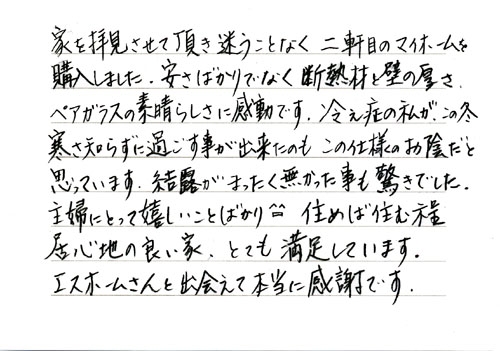 家を拝見させて頂き迷うことなく 二軒目のマイホームを
購入しました. 安さばかりでなく断熱材と壁の厚さ
ペアガラスの素晴らしさに感動です. 冷え症の私が、この冬
寒さ知らずに過ごす事が出来たのも この仕様のお陰だと
思っています. 結露がまったく無かった事も驚きでした.
主婦にとって嬉しいことばかり^^ 住めば住む程
居心地の良い家、とても 満足しています.
エスホームさんと出会えて本当に感謝です.